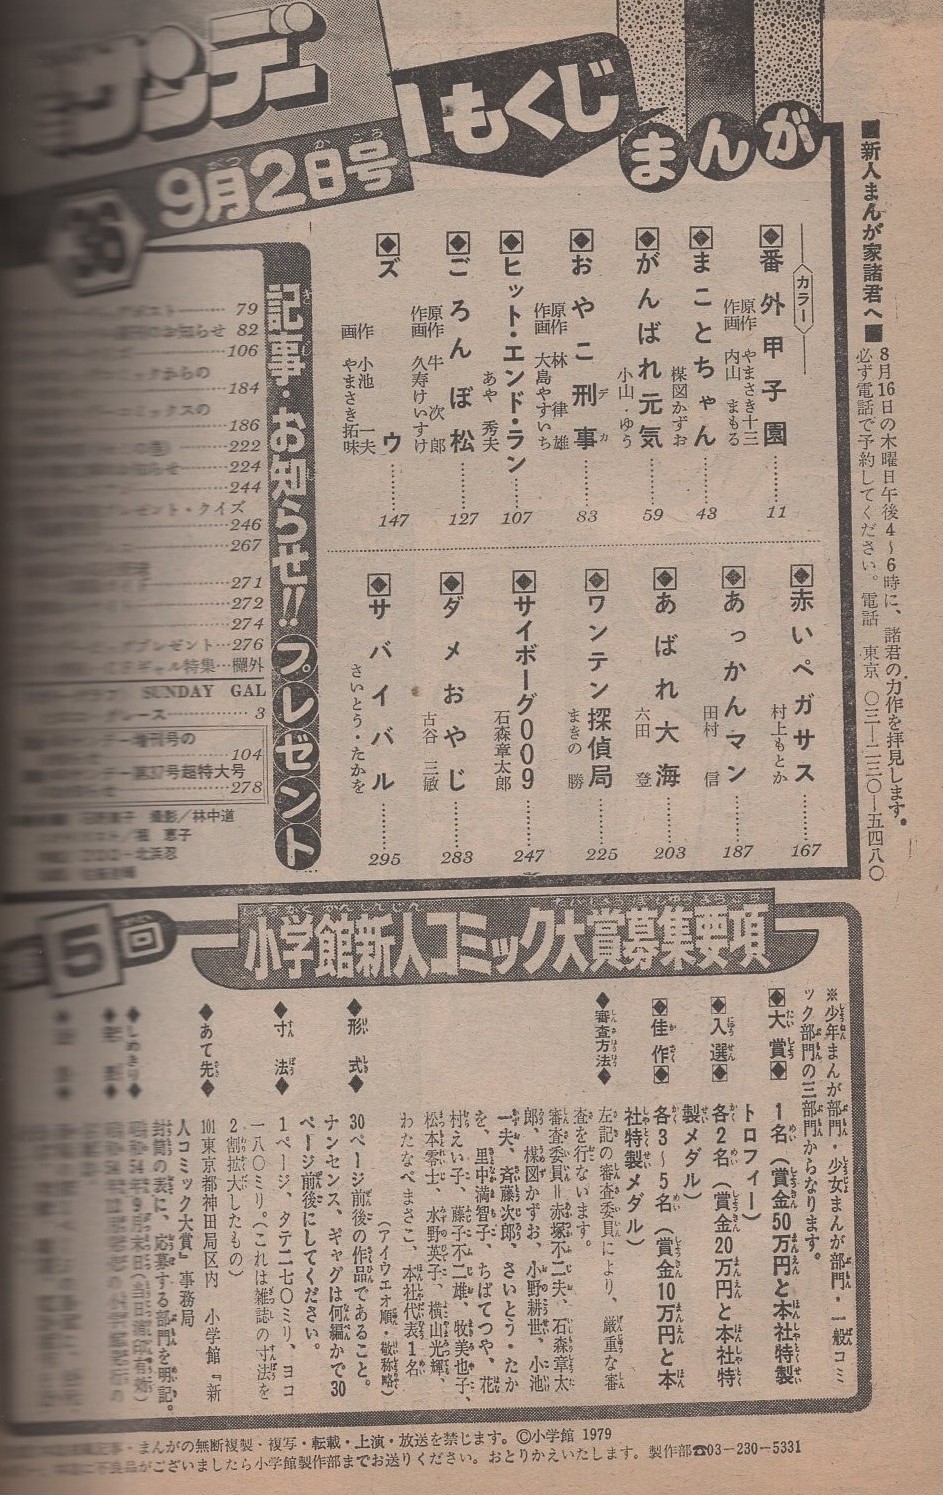 サンデー
もくじ
9月2日号
36
まんが
■新人まんが家諸君へ■
8月16日の木曜日午後4〜6時に、諸君の力作を拝見します。
必ず電話で予約してください。電話 東京 〇三―二三〇―五四八〇
カラー
番外甲子園
原作 やまさき十三
作画 内山まもる
11
まことちゃん
楳図かずお
43
がんばれ元気
小山・ゆう
59
おやこ刑事
デカ
原作 林律雄
作画 大島やすいち
83
ヒット・エンド・ラン
あや秀夫
107
ごろんぼ松
原作 牛次郎
作画 久寿けいすけ
127
ズウ
作 小池一夫
画 やまさき拓味
147
赤いペガサス
村上もとか
167
あっかんマン
田村信
187
あばれ大海
六田登
203
ワンテン探偵局
まきの勝
225
サイボーグ009
石森章太郎
247
ダメおやじ
古谷三敏
283
サバイバル
さいとう・たかを
295
記事・お知らせ!!プレゼント
79
お知らせ 82
106
クからの
184
コミックスの
186
222
224
244
プレゼント・クイズ
246
267
271
272
274
プレゼント 276
ギャル特集 欄外
SUNDAY GAL
グレース 3
増刊号の
104
第37号超特大号
278
撮影/林中道
恵子
北浜忍
第5回
小学館新人コミック大賞募集要項
※少年まんが部門・少女まんが部門・一般コミ
ック部門の三部門からなります。
◆大賞◆
1名(賞金50万円と本社特製
トロフィー)
◆入選◆
各2名(賞金20万円と本社特
製メダル)
◆佳作◆
各3〜5名(賞金10万円と本
社特製メダル)
◆審査方法◆
左記の審査委員により、厳重な審
査を行ないます。
審査委員=赤塚不二夫、石森章太
郎、楳図かずお、小野耕世、小池
一夫、斉藤次郎、さいとう・たか
を、里中満智子、ちばてつや、花
村えい子、藤子不二雄、牧美也子、
松本零士、水野英子、横山光輝、
わたなべまさこ、本社代表1名
(アイウエオ順・敬称略)
◆形式◆
30ページ前後の作品であること。
ナンセンス、ギャグは何編かで30
ページ前後にしてください。
◆寸法◆
1ページ、タテ二七〇ミリ、ヨコ
一八〇ミリ。(これは雑誌の寸法を
2割拡大したもの)
◆あて先◆
101東京都神田局区内 小学館『新
人コミック大賞』事務局
封筒の表に、応募する部門を明記。
◆しめきり◆
昭和54年9月末日(当日消印有効)
記事・まんがの無断複製・複写・転載・上演・放送を禁じます。©小学館 1979
不良品がございましたら小学館製作部までお送りください。おとりかえいたします。製作部☎03-230-5331